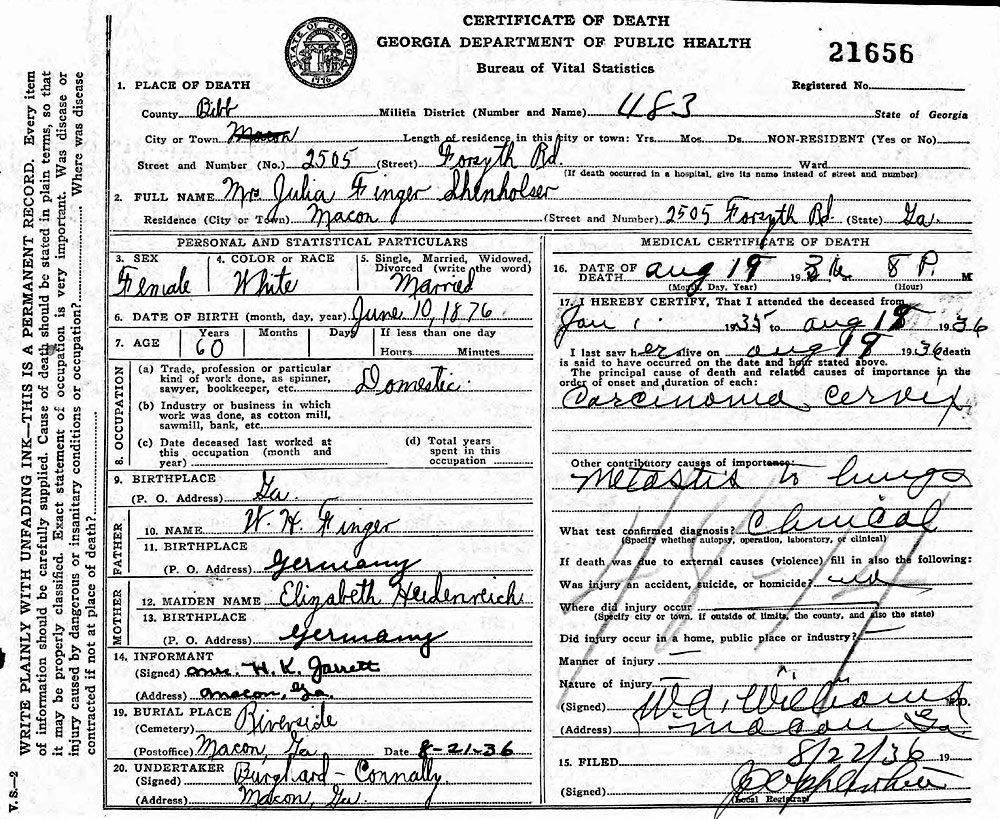 CERTIFICATE OF DEATH
GEORGIA DEPARTMENT OF PUBLIC HEALTH
Bureau of Vital Statistics
STATE OF GEORGIA
1776
21656
Registered No.
1. PLACE OF DEATH
County Bibb Militia District (Number and Name) 483 State of Georgia
City or Town Macon Length of residence in this city or town: Yrs. Mos. Ds. NON-RESIDENT (Yes or No)
Street and Number (No.) 2505 (Street) Forsyth Rd. Ward
(If death occurred in a hospital, give its name instead of street and number)
2. FULL NAME Mrs. Julia Finger Shinholser
Residence (City or Town) Macon (Street and Number) 2505 Forsyth Rd. (State) Ga.
PERSONAL AND STATISTICAL PARTICULARS
3. SEX Female
4. COLOR or RACE White
5. Single, Married, Widowed, Divorced (write the word) Married
6. DATE OF BIRTH (month, day, year) June 10, 1876
7. AGE Years 60 Months Days If less than one day
Hours Minutes
8. OCCUPATION
(a) Trade, profession or particular kind of work done, as spinner, sawyer, bookkeeper, etc. Domestic
(b) Industry or business in which work was done, as cotton mill, sawmill, bank, etc.
(c) Date deceased last worked at this occupation (month and year)
(d) Total years spent in this occupation
9. BIRTHPLACE
(P. O. Address) Ga.
FATHER
10. NAME W. H. Finger
11. BIRTHPLACE
(P. O. Address) Germany
MOTHER
12. MAIDEN NAME Elizabeth Heidenreich
13. BIRTHPLACE
(P. O. Address) Germany
14. INFORMANT
(Signed) Mrs. H. K. Garrett
(Address) Macon, Ga.
19. BURIAL PLACE
(Cemetery) Riverside
(Postoffice) Macon, Ga Date 8-21-36
20. UNDERTAKER
(Signed) Burghard - Connally
(Address) Macon, Ga.
MEDICAL CERTIFICATE OF DEATH
16. DATE OF DEATH Aug 19 1936 8 P. M
(Month, Day, Year) (Hour)
17. I HEREBY CERTIFY, That I attended the deceased from
Jan 1 1935 to Aug 19 1936
I last saw her alive on Aug 19 1936 death
is said to have occurred on the date and hour stated above.
The principal cause of death and related causes of importance in the
order of onset and duration of each:
Carcinoma Cervix
Other contributory causes of importance:
Metastis to lungs
What test confirmed diagnosis? Clinical
(Specify whether autopsy, operation, laboratory, or clinical)
If death was due to external causes (violence) fill in also the following:
Was injury an accident, suicide, or homicide? no
Where did injury occur
(Specify city or town, if outside of limits, the county, and also the state)
Did injury occur in a home, public place or industry?
Manner of injury
Nature of injury
(Signed) W. A. Williams M.D.
(Address) Macon Ga.
15. FILED 8/22/36 19
(Signed)
(Local Registrar)
WRITE PLAINLY WITH UNFADING INK—THIS IS A PERMANENT RECORD. Every item
of information should be carefully supplied. Cause of death should be stated in plain terms, so that
it may be properly classified. Exact statement of occupation is very important. Was disease or
injury caused by dangerous or insanitary conditions or occupation? Where was disease
contracted if not at place of death?
V. S.—2